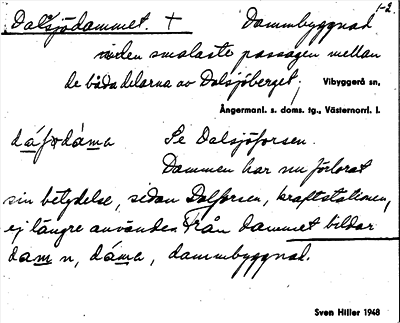 1-2
Dalsjödammet. + Dammbyggnad
vid den smalaste passagen mellan
de båda delarna av Dalsjöberget. Vibyggerå sn,
Ångermanl. s. doms. tg., Västernorrl. l.
Se Dalsjöforsen.
Dammen har nu förlorat
sin betydelse, sedan Dalforsen, kraftstationen,
ej längre användes. Från dammet bildar
dam n, dáma, dammbyggnad.
Sven Hiller 1948